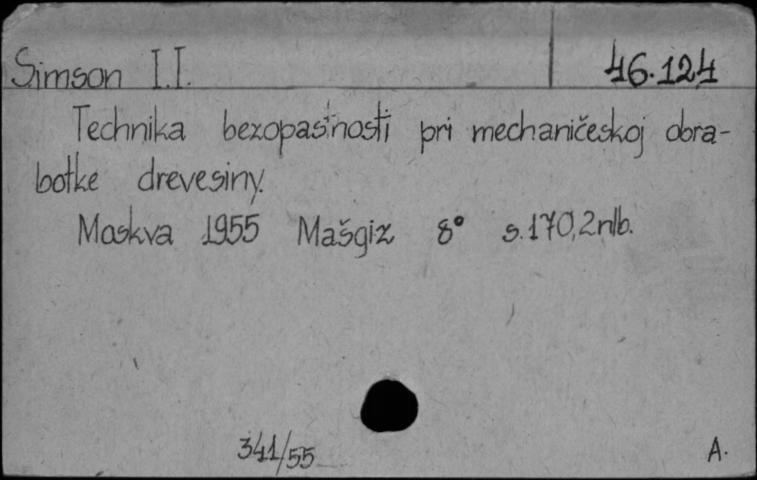 Simson I.I. 46.124
Technika bezopasnosti pri mechaničeskoj obra-
botke drevesiny.
Moskva 1955 Mašgiz 8° s.170,2nlb.
341/55 A.